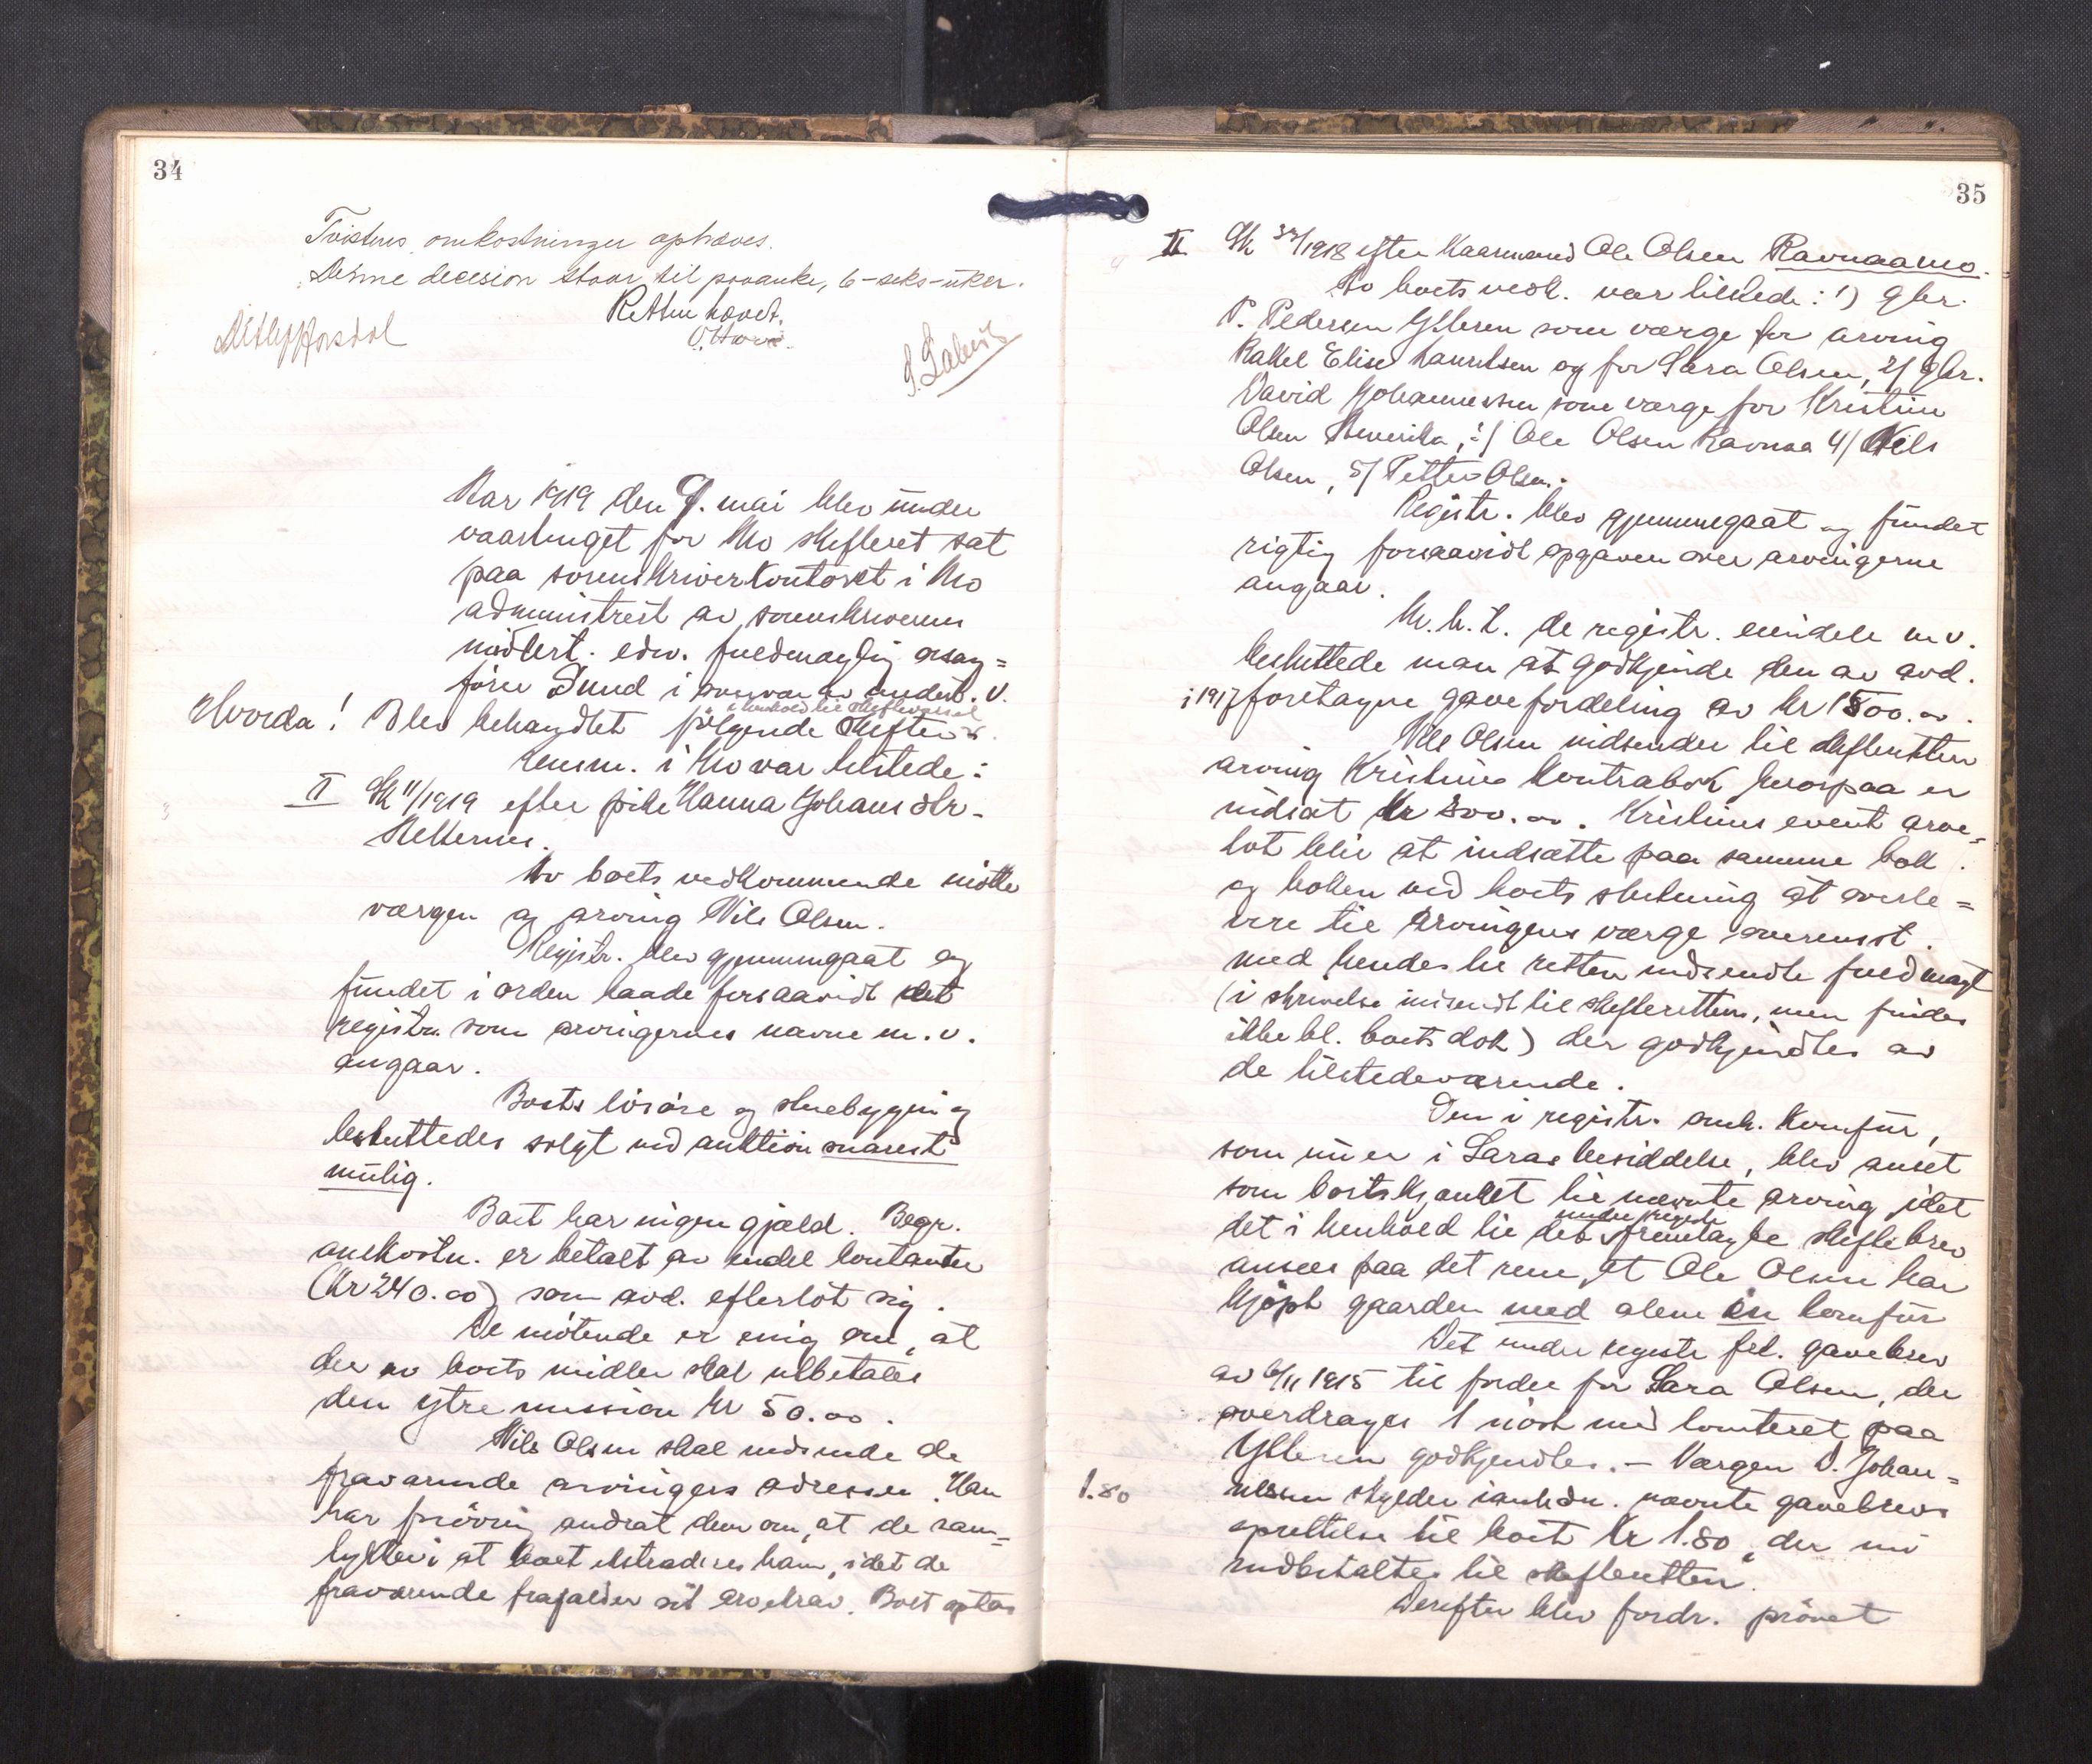 34
Tvistens omkostninger ophæves.
Denne decision staar til paaanke, 6-seks-uker.
Retten hævet.
Aar 1919 den 9. mai blev under
vaartinget for Mo skifteret sat
paa sorenskriverkontoret i Mo
administrert av sorenskriverens
midlert. edsv. fuldmægtig orsag=
förer Sund i nærvær av undert. v.
Hvorda! Blev behandlet følgende skifter
i henhold til skiftevarsel
Lensm. i Mo var tilstede:
II Sk 11/1919 efter pike Hanna Johansdtr.
Av boets vedkommende møtte
værgen og arving Nils Olsen.
Registr. blev gjennemgaat og
fundet i orden baade forsaavidt det
registr. som arvingernes navne m.v.
angaar.
Boets løsøre og skuebygning
besluttedes solgt ved auktion snarest
mulig.
Boet har ingen gjæld. Begr.
omkostn. er betalt av endel kontanter
(kr 240.00) som avd. efterlot sig.
De møtende er enig om, at
der av boets midler skal utbetales
den ytre mission kr 50.00.
Nils Olsen skal indsende de
fraværende arvingers adresser. Han
har forøvrig andrat dem om, at de sam=
tykker i at boet extraderes ham, idet de
fraværende frafalder sit arvekrav. Boet optas
35
II Sk 32/1918 efter kaarmand Ole Olsen Ravnaamo.
Av boets vedk. var tilstede: 1) gbr.
P. Pedersen Ytteren som værge for arving
Rakel Elise Lauritsen og for Sara Olsen, 2/ gbr.
David Johannessen som værge for Kristine
Olsen Amerika, 3/ Ole Olsen Ravnaa 4/ Nils
Olsen, 5/ Petter Olsen.
Registr. blev gjennemgaat og fundet
rigtig forsaavidt opgaven over arvingerne
angaar.
M.h.t. de registr. eiendele m.v.
besluttede man at godkjende den av avd.
i 1917 foretagne gavefordeling av kr 1500.00.
Nils Olsen indsender til skifteretten
arving Kristines kontrabok hvorpaa er
indsat kr 300.00. Kristines event arve=
lot blir at indsætte paa samme bok
og boken ved boets slutning at overle=
vere til arvingens værge overensst.
med hendes til retten indsendte fuldmagt
(i skrivelse indsendt til skifteretten, men findes
ikke bl. boets dok) der godkjendtes av
de tilstedeværende.
Den i registr. omh. komfur,
som nu er i Saras besiddelse, blev anset
som bortskjænket til nævnte arving idet
det i henhold til det under registr. fremlagte skiftebrev
ansees paa det rene, at Ole Olsen har
kjøpt gaarden med alene en komfur
Det under registr. frl. gavebrev
av 6/11 1915 til fordel for Sara Olsen, der
overdrages 1 nøst med tomteret paa
Ytteren godkjendtes. - Værgen D. Johan=
1.80 nessen skylder ianledn. nævnte gavebrevs
oprettelse til boet kr 1.80, der nu
indbetaltes til skifteretten.
Derefter blev fordr. prøvet